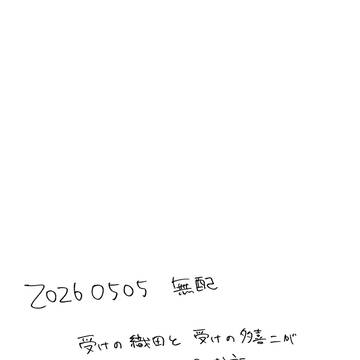 20260505 無配
受けの織田と 受けの多喜二が